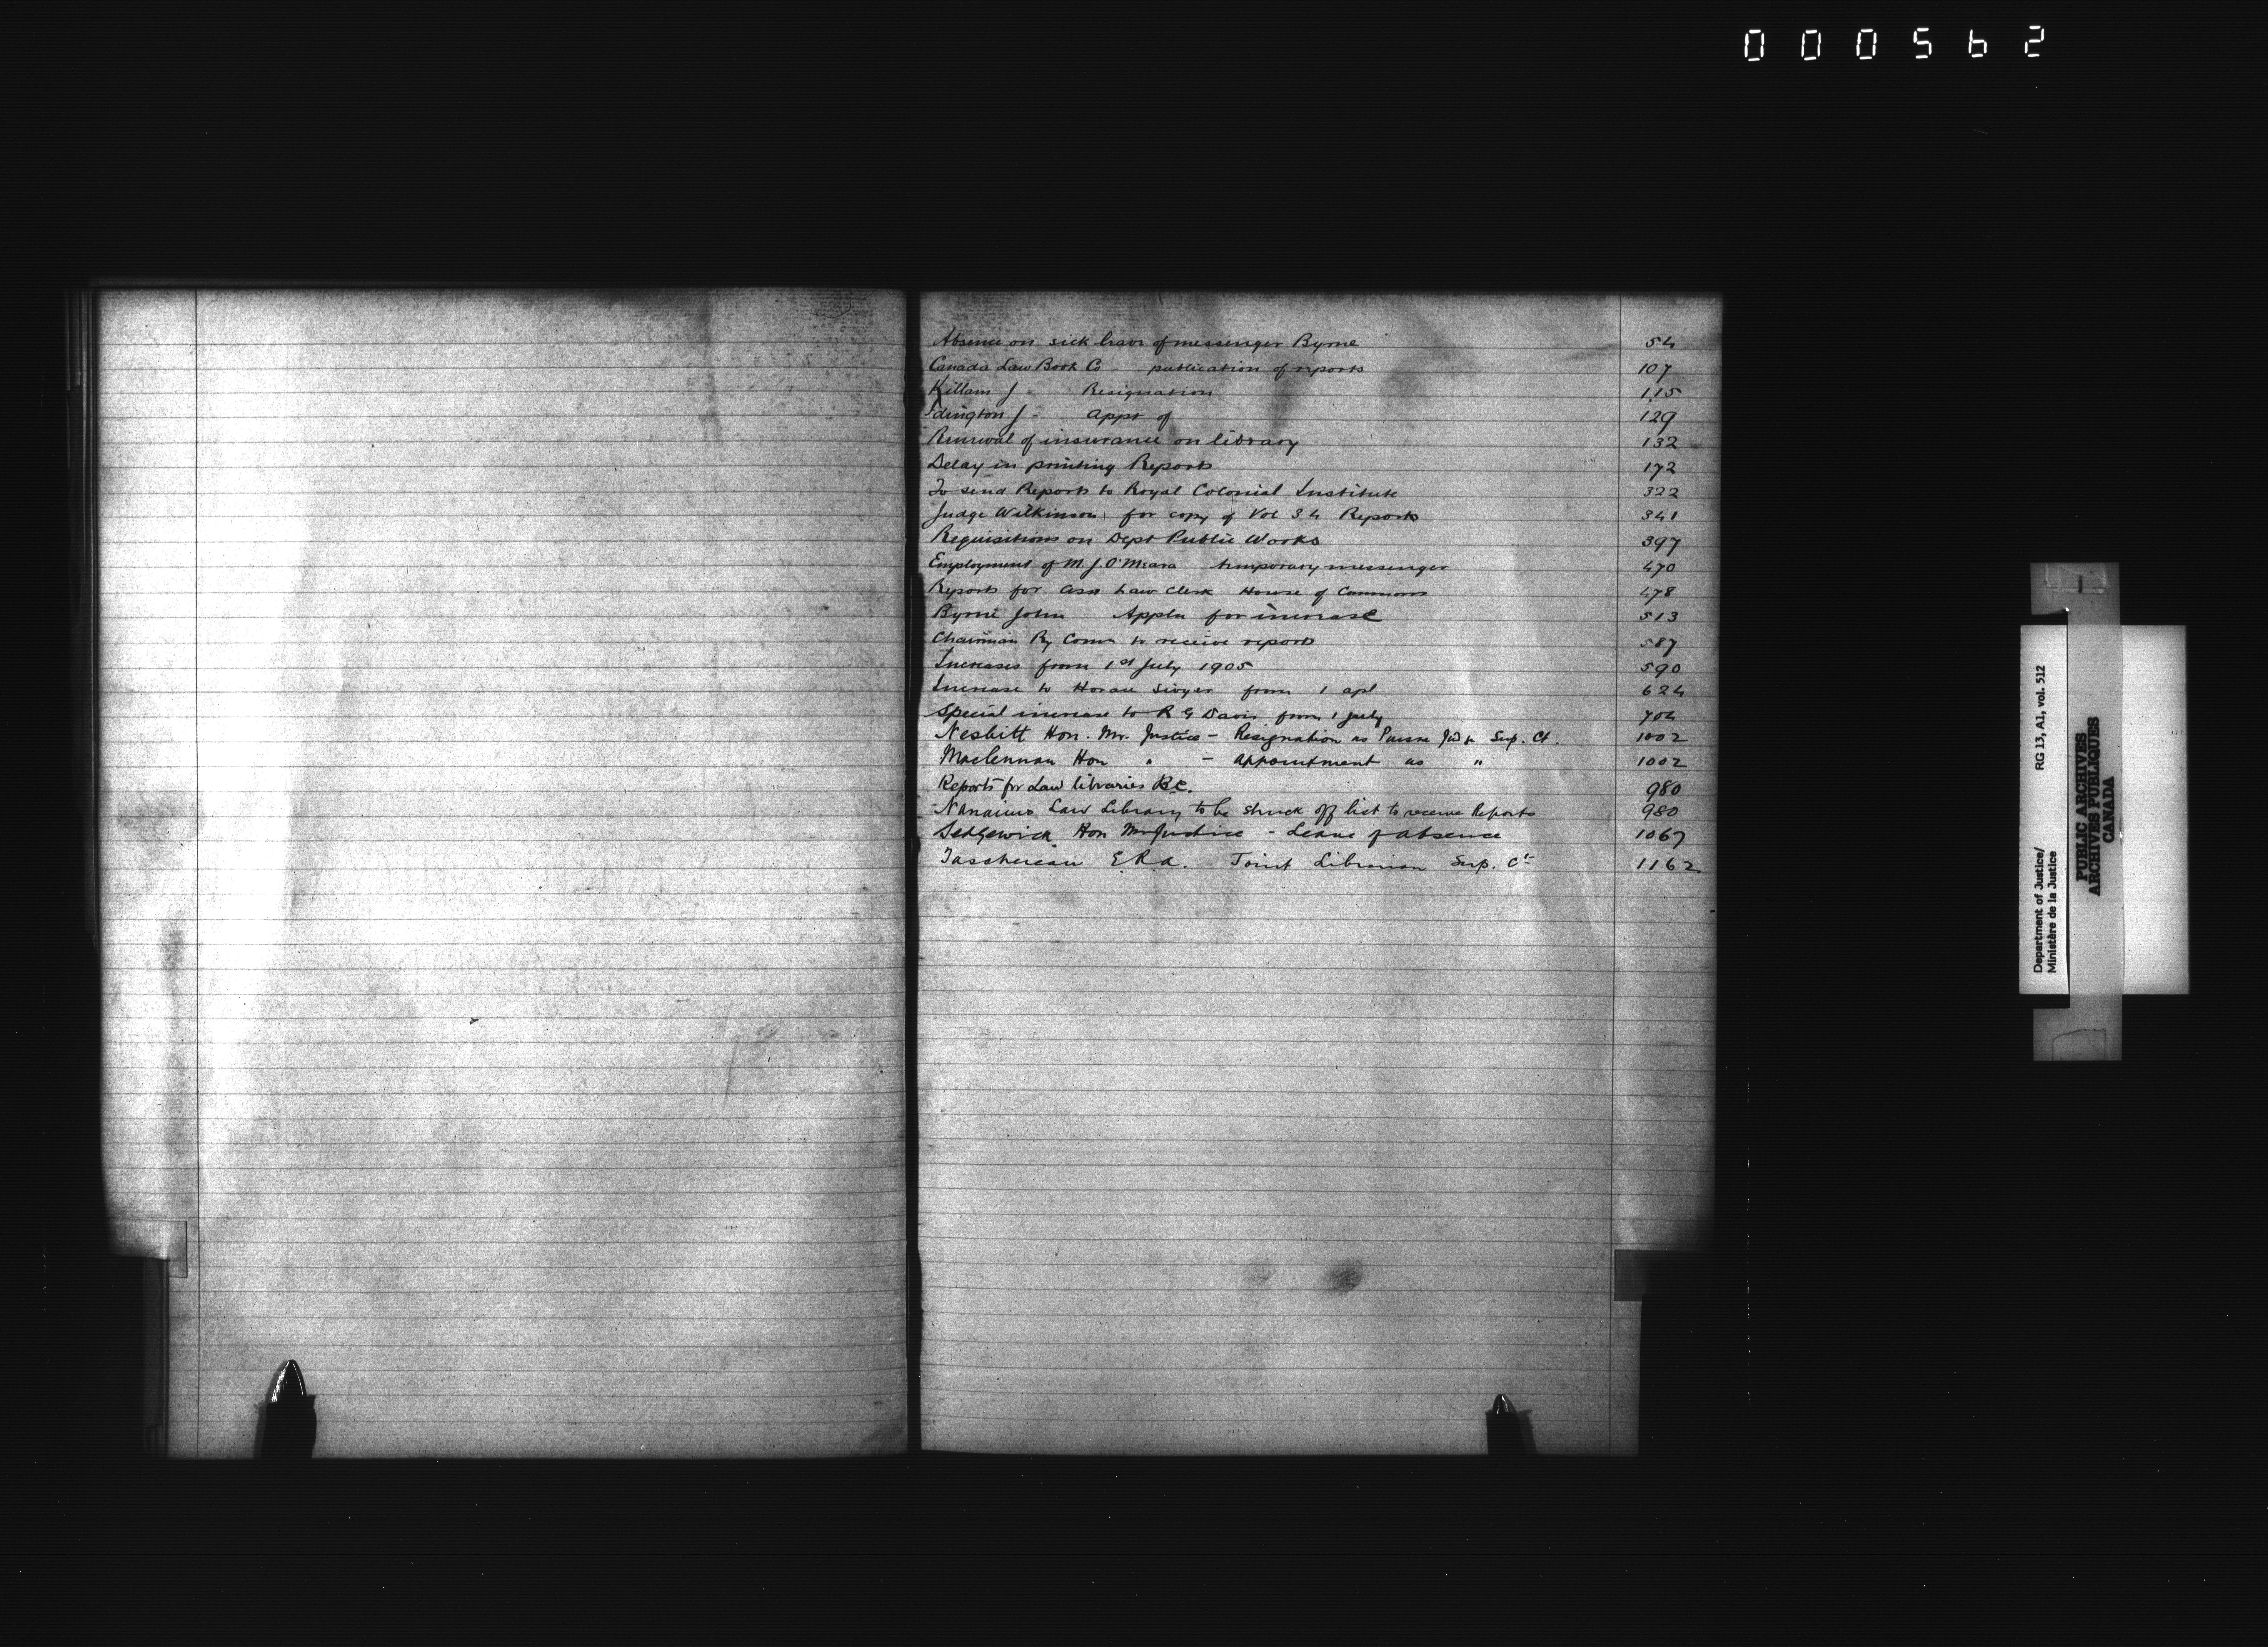 000562
Absence on sick leave of messenger Byrne 54
Canada Law Book Co - publication of reports 107
Killam J - Resignation 115
Idington J - Appt of 129
Renewal of insurance on library 132
Delay in printing Reports 172
To send Reports to Royal Colonial Institute 322
Judge Wilkinson for copy of Vol 34 Reports 341
Requisitions on Dept Public Works 397
Employment of M. J. O'Meara temporary messenger 470
Reports for Asst Law Clerk House of Commons 478
Byrne John Appln for increase 513
Chairman Ry Comn to receive reports 587
Increases from 1st July 1905 590
Increase to Horace from 1 apl 624
Special increase to R G Davis from 1 July 704
Nesbitt Hon. Mr. Justice - Resignation as Puisne Sup. Ct. 1002
Maclennan Hon " - appointment as " 1002
Reports for Law libraries B.C. 980
Nanaimo Law Library to be struck off list to receive Reports 980
Sedgewick Hon Mr Justice - Leave of absence 1067
Taschereau E.R.A. Joint Librarian Sup. Ct 1162
Department of Justice/ RG 13, A1, vol. 512
Ministère de la Justice
PUBLIC ARCHIVES
ARCHIVES PUBLIQUES
CANADA